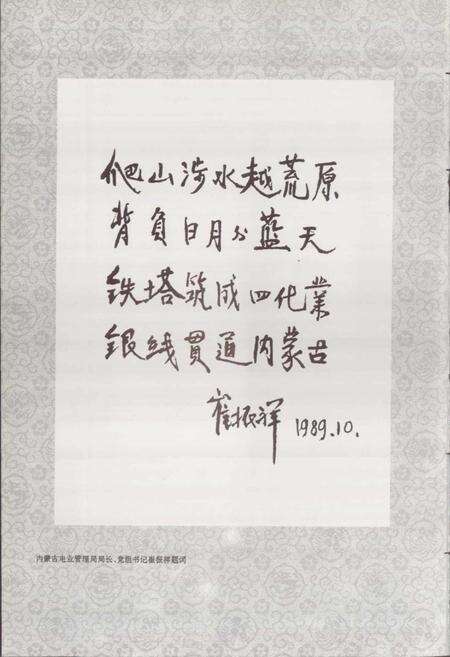 爬山涉水越荒原
背负日月分蓝天
铁塔筑成四化業
银线贯通内蒙古
崔振祥 1989.10.
内蒙古电业管理局局长、党组书记崔振祥题词